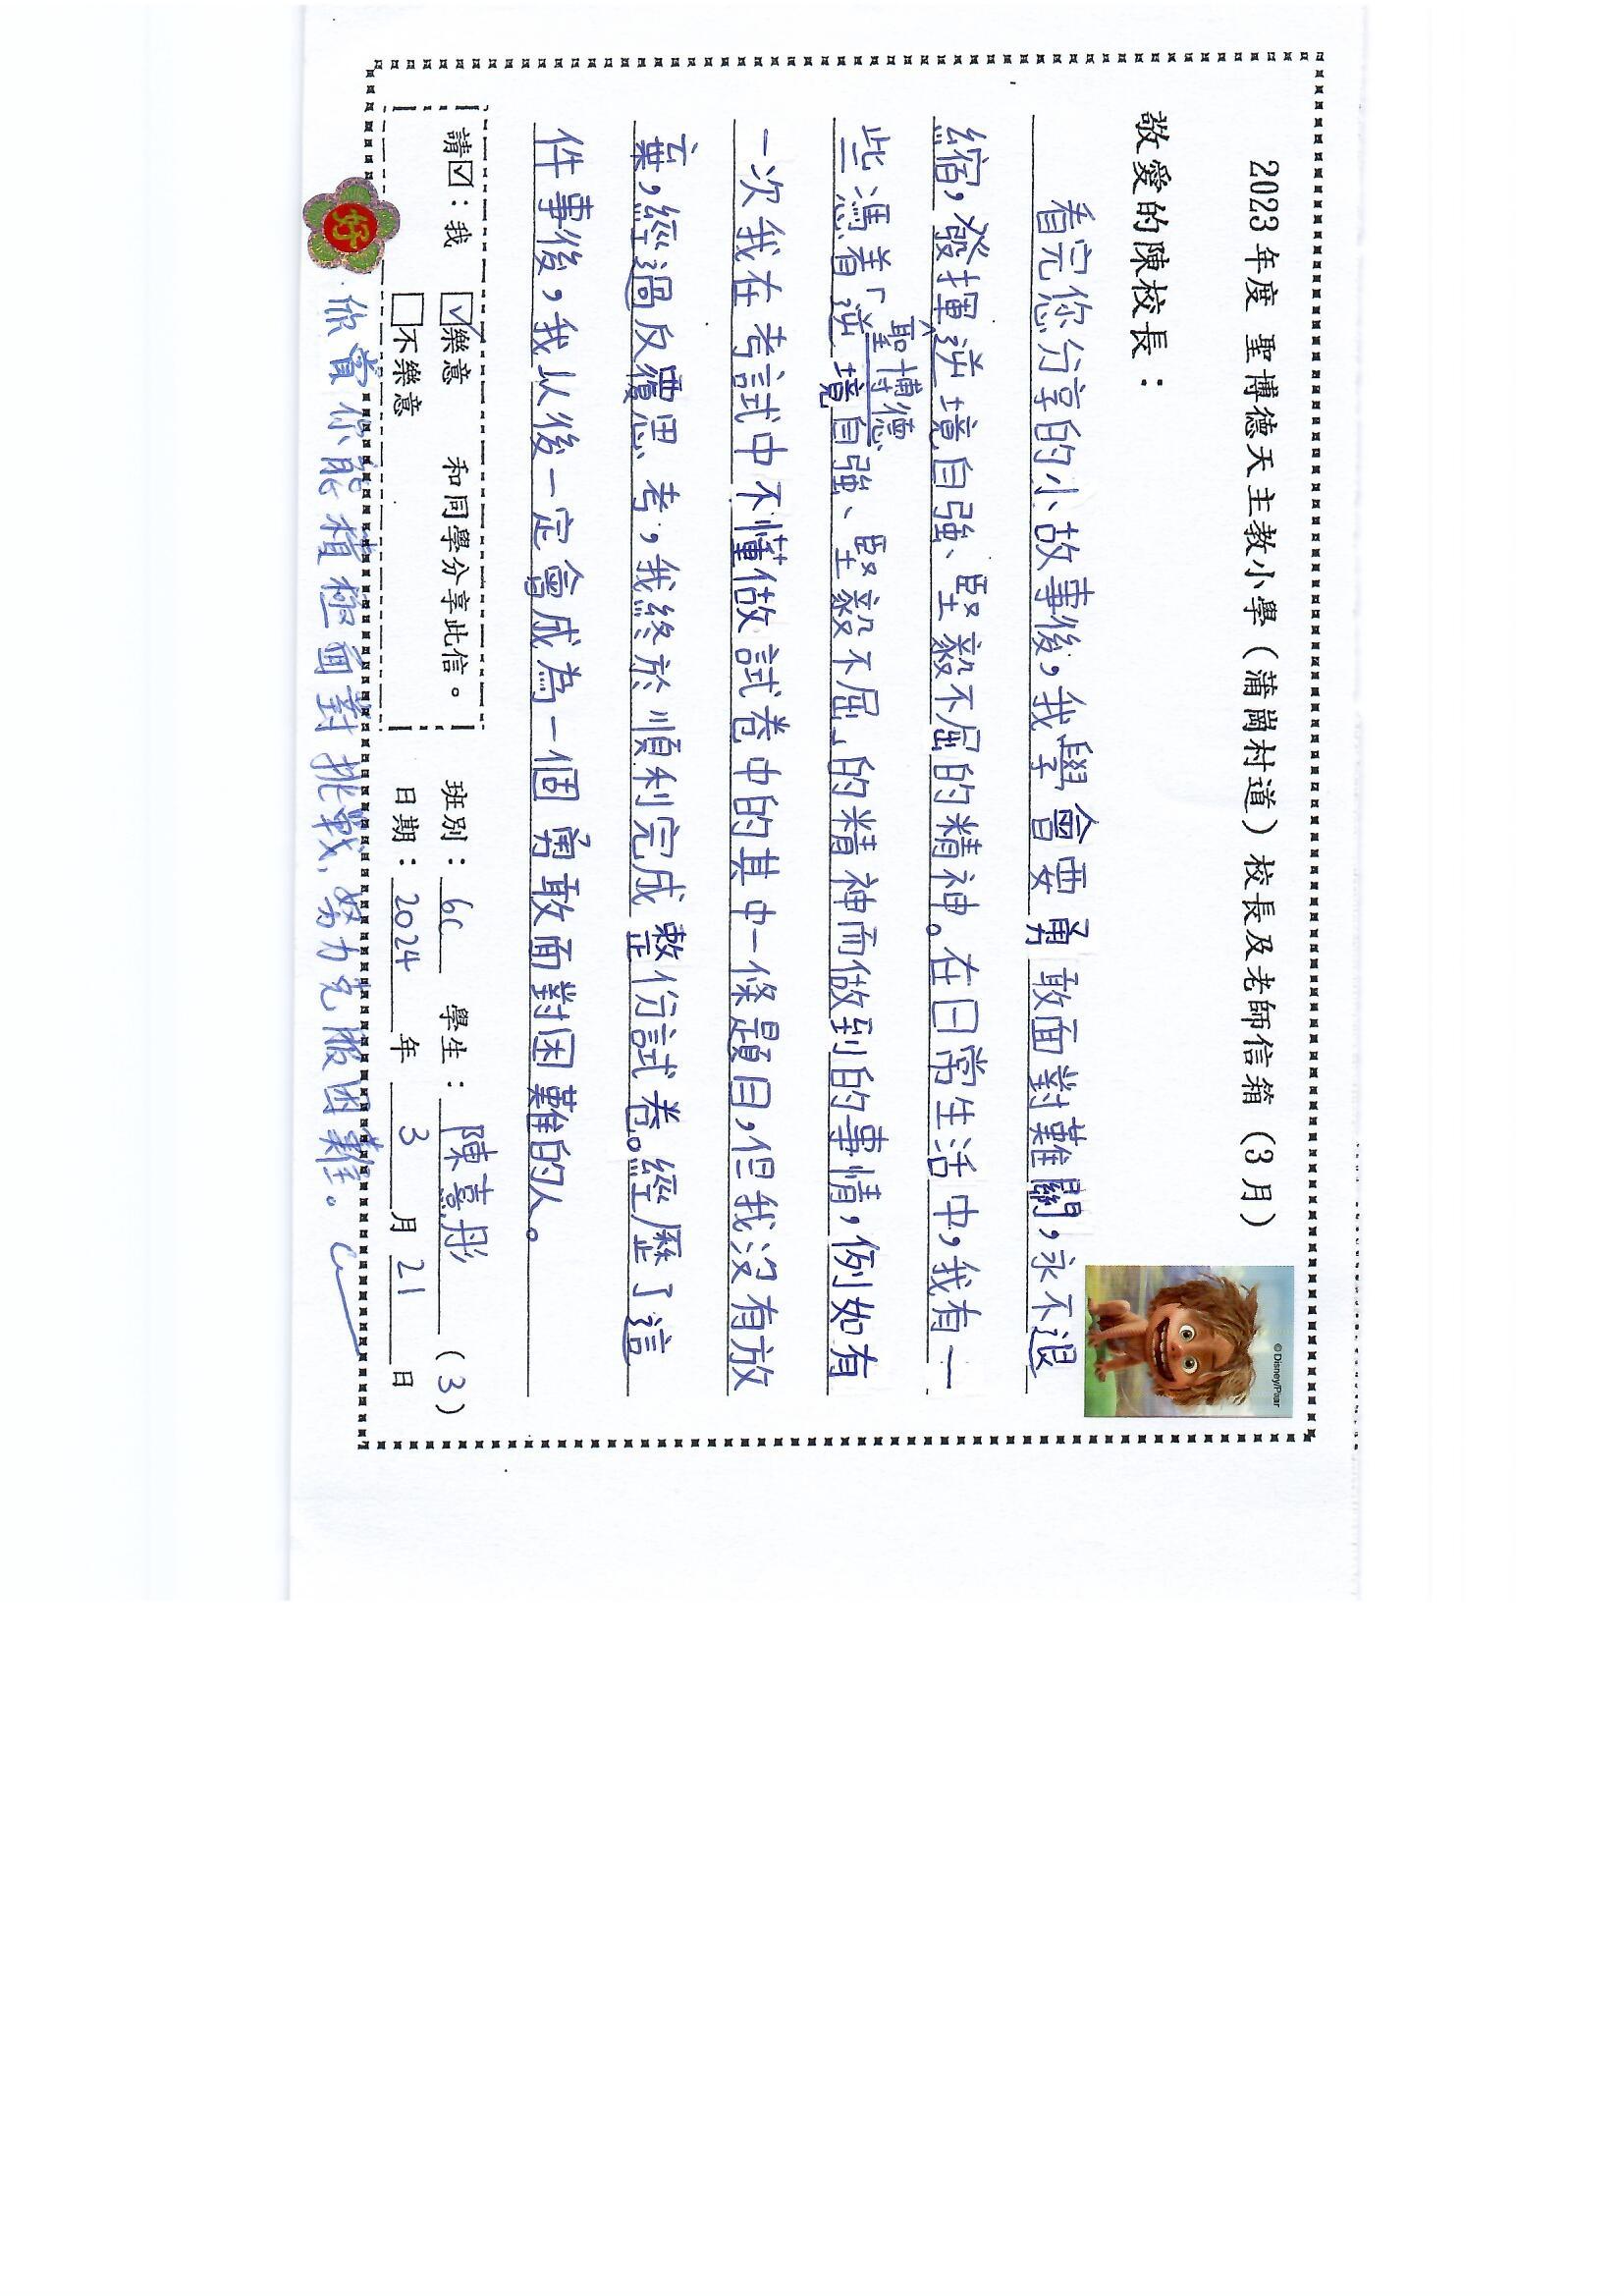 2023 年度 聖博德天主教小學（蒲崗村道）校長及老師信箱（3 月）
© Disney/Pixar
敬愛的陳校長：
看完您分享的小故事後，我學會要勇敢面對難關，永不退
縮，發揮逆境自強、堅毅不屈的精神。在日常生活中，我有一
聖博德
些憑着「逆境自強、堅毅不屈」的精神而做到的事情，例如有
一次我在考試中不懂做試卷中的其中一條題目，但我沒有放
棄，經過反覆思考，我終於順利完成整份試卷。經歷了這
件事後，我以後一定會成為一個勇敢面對困難的人。
請☑：我 ☑樂意 和同學分享此信。
□不樂意
班別：6C 學生：陳熹彤（3）
日期：2024 年 3 月 21 日
好
欣賞你能積極面對挑戰，努力克服困難。